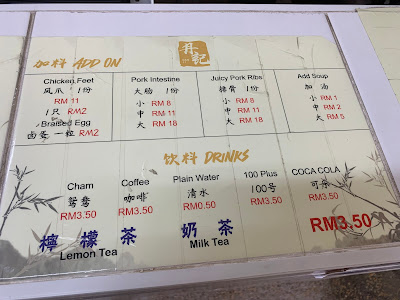 加料 ADD ON
丹記
Chicken Feet
风爪 1份
RM 11
1只 RM2
Braised Egg
卤蛋 一粒 RM2
Pork Intestine
大肠 1份
小 RM 8
中 RM 11
大 RM 18
Juicy Pork Ribs
排骨 1份
小 RM 8
中 RM 11
大 RM 18
Add Soup
加汤
小 RM 1
中 RM 2
大 RM 5
饮料 DRINKS
Cham
鸳鸯
RM3.50
Coffee
咖啡
RM3.50
Plain Water
清水
RM0.50
100 Plus
100号
RM3.50
COCA COLA
可乐
RM3.50
檸檬茶
Lemon Tea
奶茶
Milk Tea
RM3.50